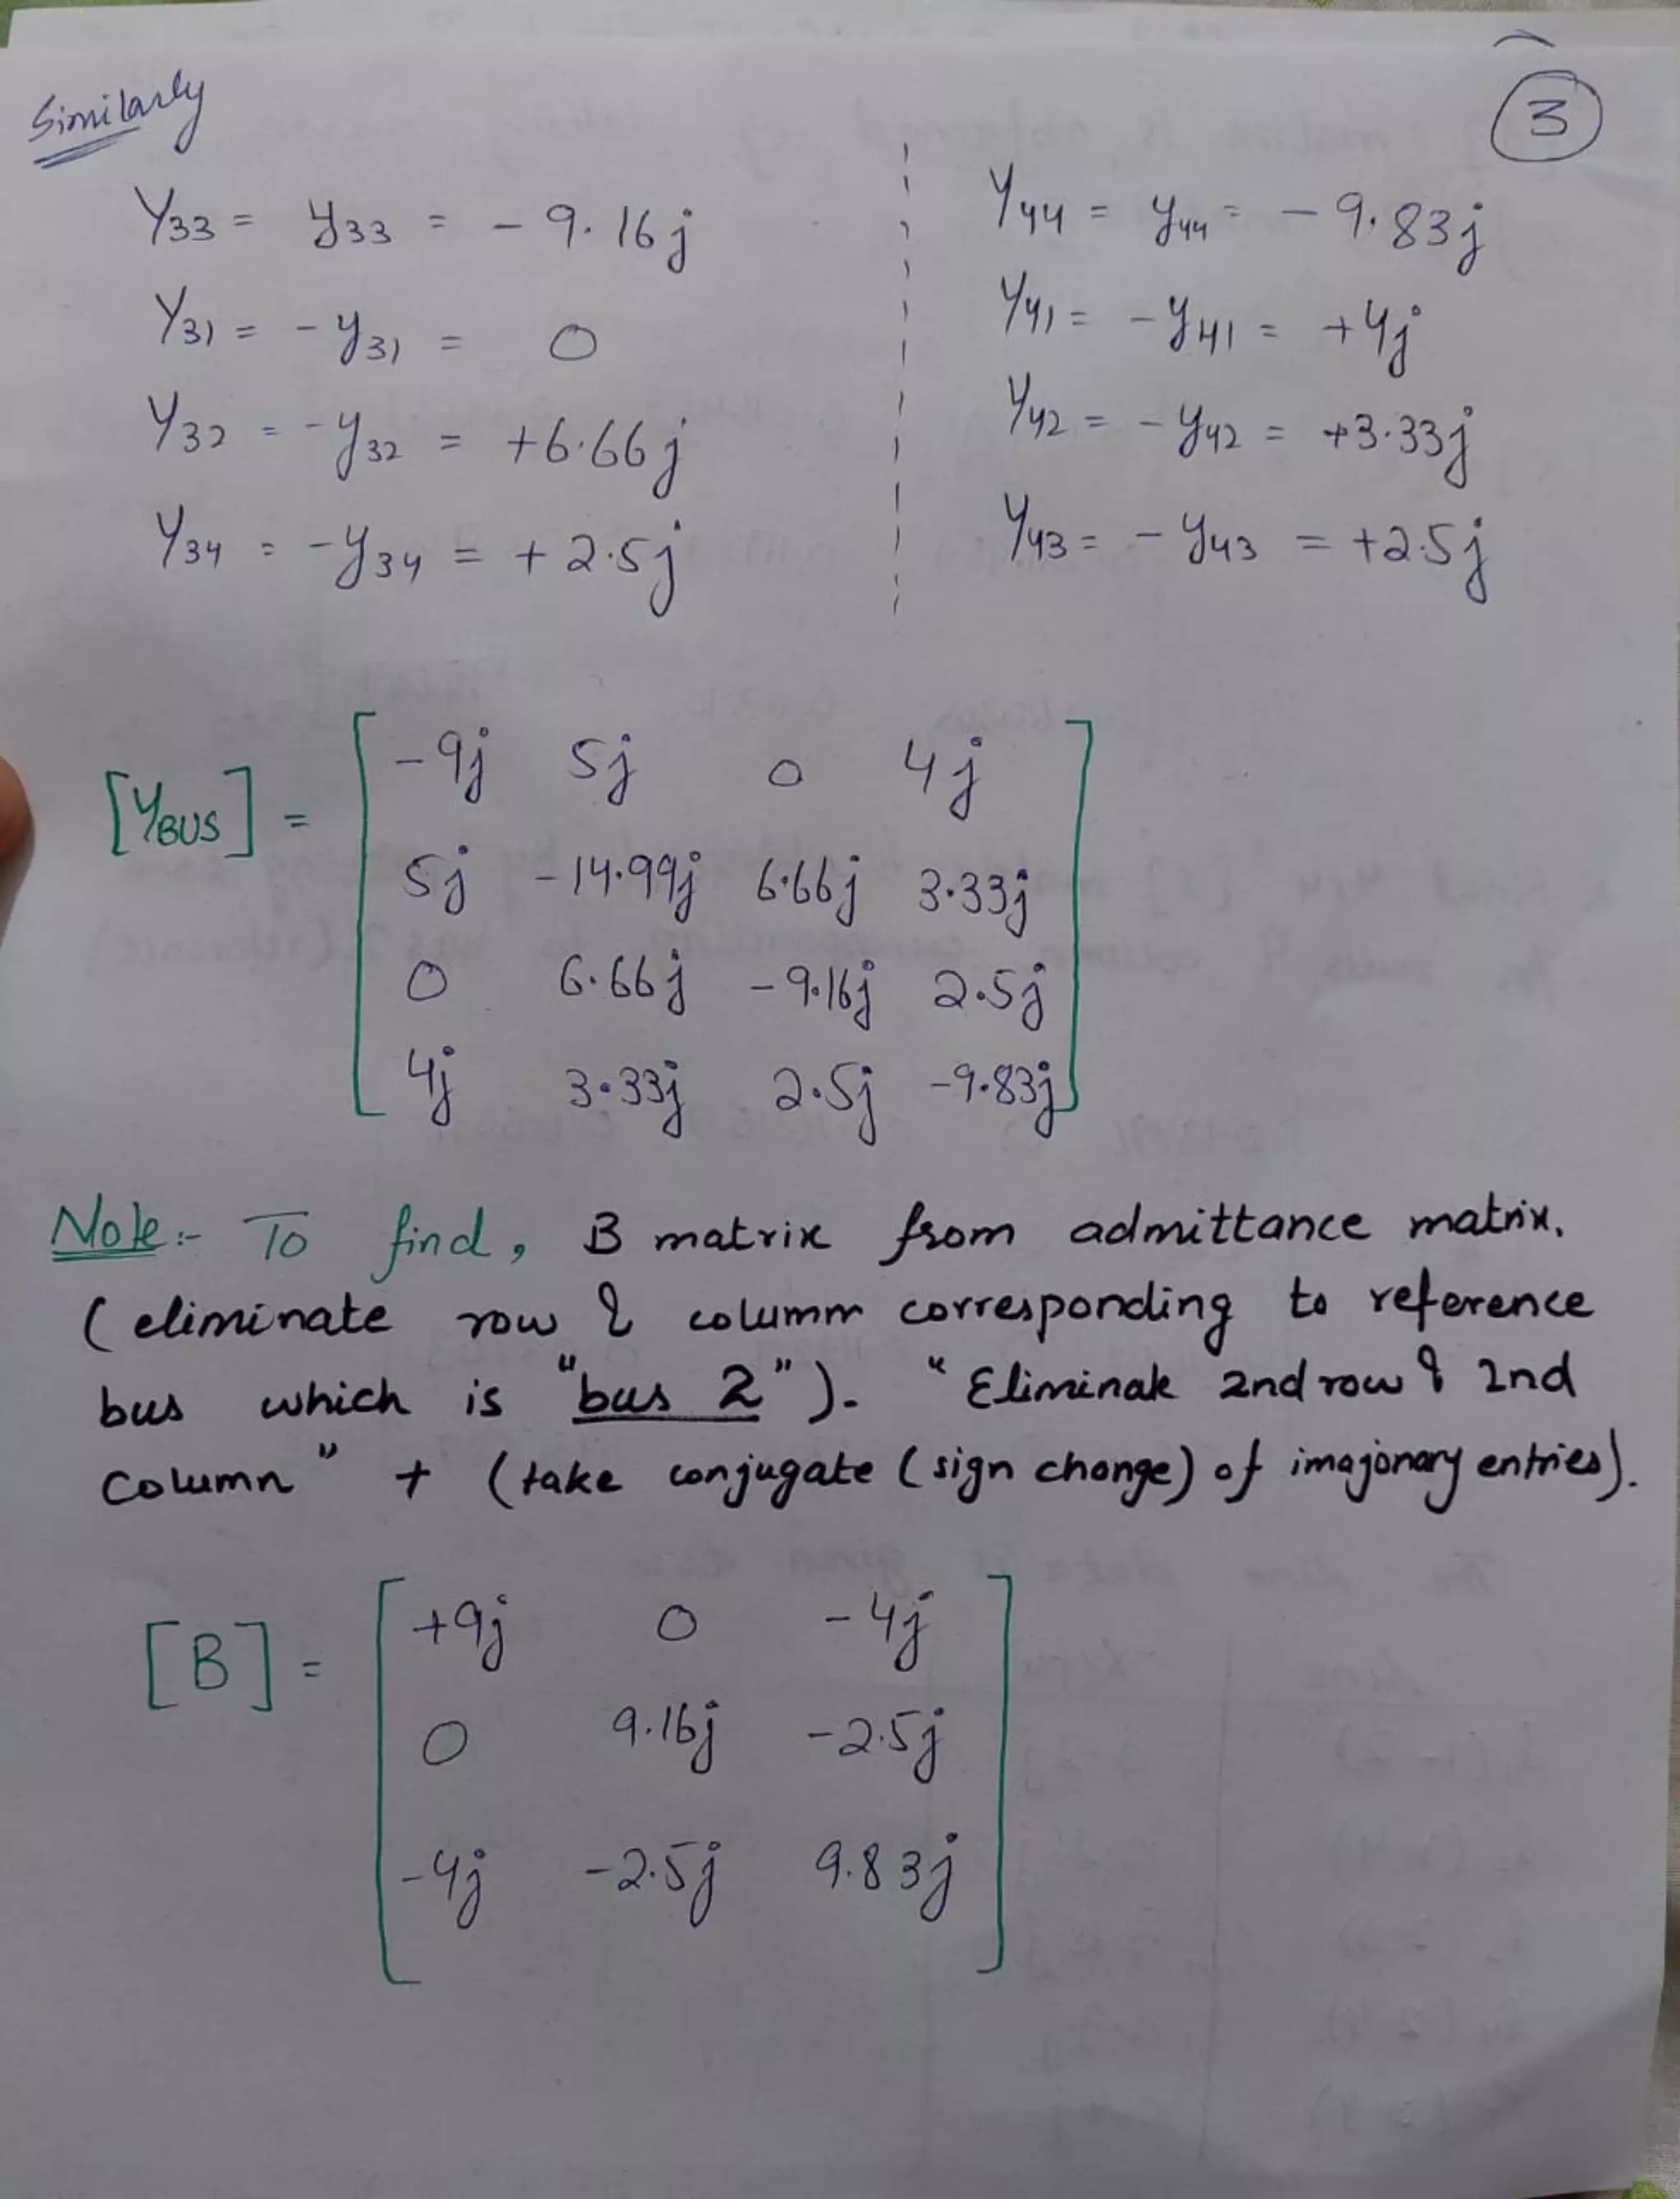 Similarly
3
Y33 = y33 = - 9.16j
Y31 = - y31 = 0
Y32 = - y32 = +6.66j
Y34 = - y34 = + 2.5j
Y44 = y44 = - 9.83j
Y41 = - y41 = +4j
Y42 = - y42 = +3.33j
Y43 = - y43 = +2.5j
[YBUS] =
-9j 5j 0 4j
5j -14.99j 6.66j 3.33j
0 6.66j -9.16j 2.5j
4j 3.33j 2.5j -9.83j
Note:- To find, B matrix from admittance matrix.
(eliminate row & column corresponding to reference
bus which is "bus 2"). "Eliminate 2nd row & 2nd
column" + (take conjugate (sign change) of imajonary entries).
[B] =
+9j 0 -4j
0 9.16j -2.5j
-4j -2.5j 9.83j